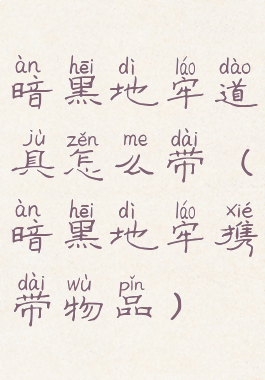 àn hēi dì láo dào
暗黑地牢道
jù zěn me dài
具怎么带（
àn hēi dì láo xié
暗黑地牢携
dài wù pǐn
带物品）